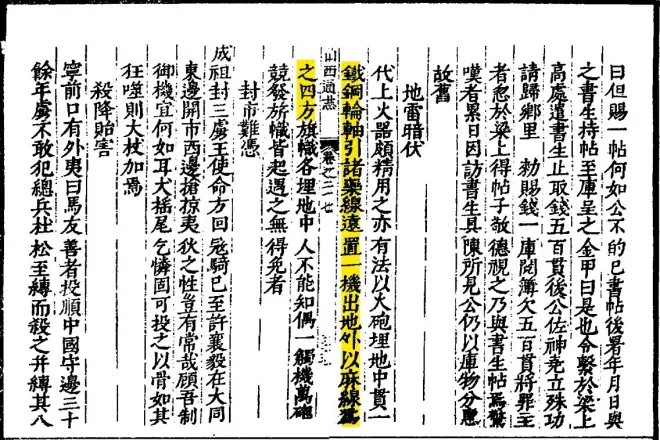 曰但賜一帖何如公不的已書帖後署年月日與
之書生持帖至庫呈之金甲曰是也令繫於梁上
高處遣書生止取錢五百貫後公佐神堯立殊功
請歸鄉里 勅賜錢一庫閱簿欠五百貫將罪主
者忽於梁上得帖子敬德視之乃與書生帖焉驚
嘆者累日因訪書生具陳所見公仍以庫物分惠
故舊
地雷暗伏
代上火器頗精用之亦有法以大砲埋地中貫一
鐵鋼輪軸引諸藥線遠置一機出地外以麻線
山西通志 卷之二七
之四方旗幟各埋地中人不能知偶一觸機萬砲
競發旂幟皆起遇之無得免者
封市難憑
成祖封三虜王使命方回殘騎已至許襄毅在大同
東邊開市西邊搶掠夷狄之性豈有常哉顧吾制
御機宜何如耳犬搖尾乞憐固可投之以骨如其
狂噬則大杖加焉
殺降貽害
寧前口有外夷曰馬友善者投順中國守邊三十
餘年虜不敢犯總兵杜松至縛而殺之并縛其八